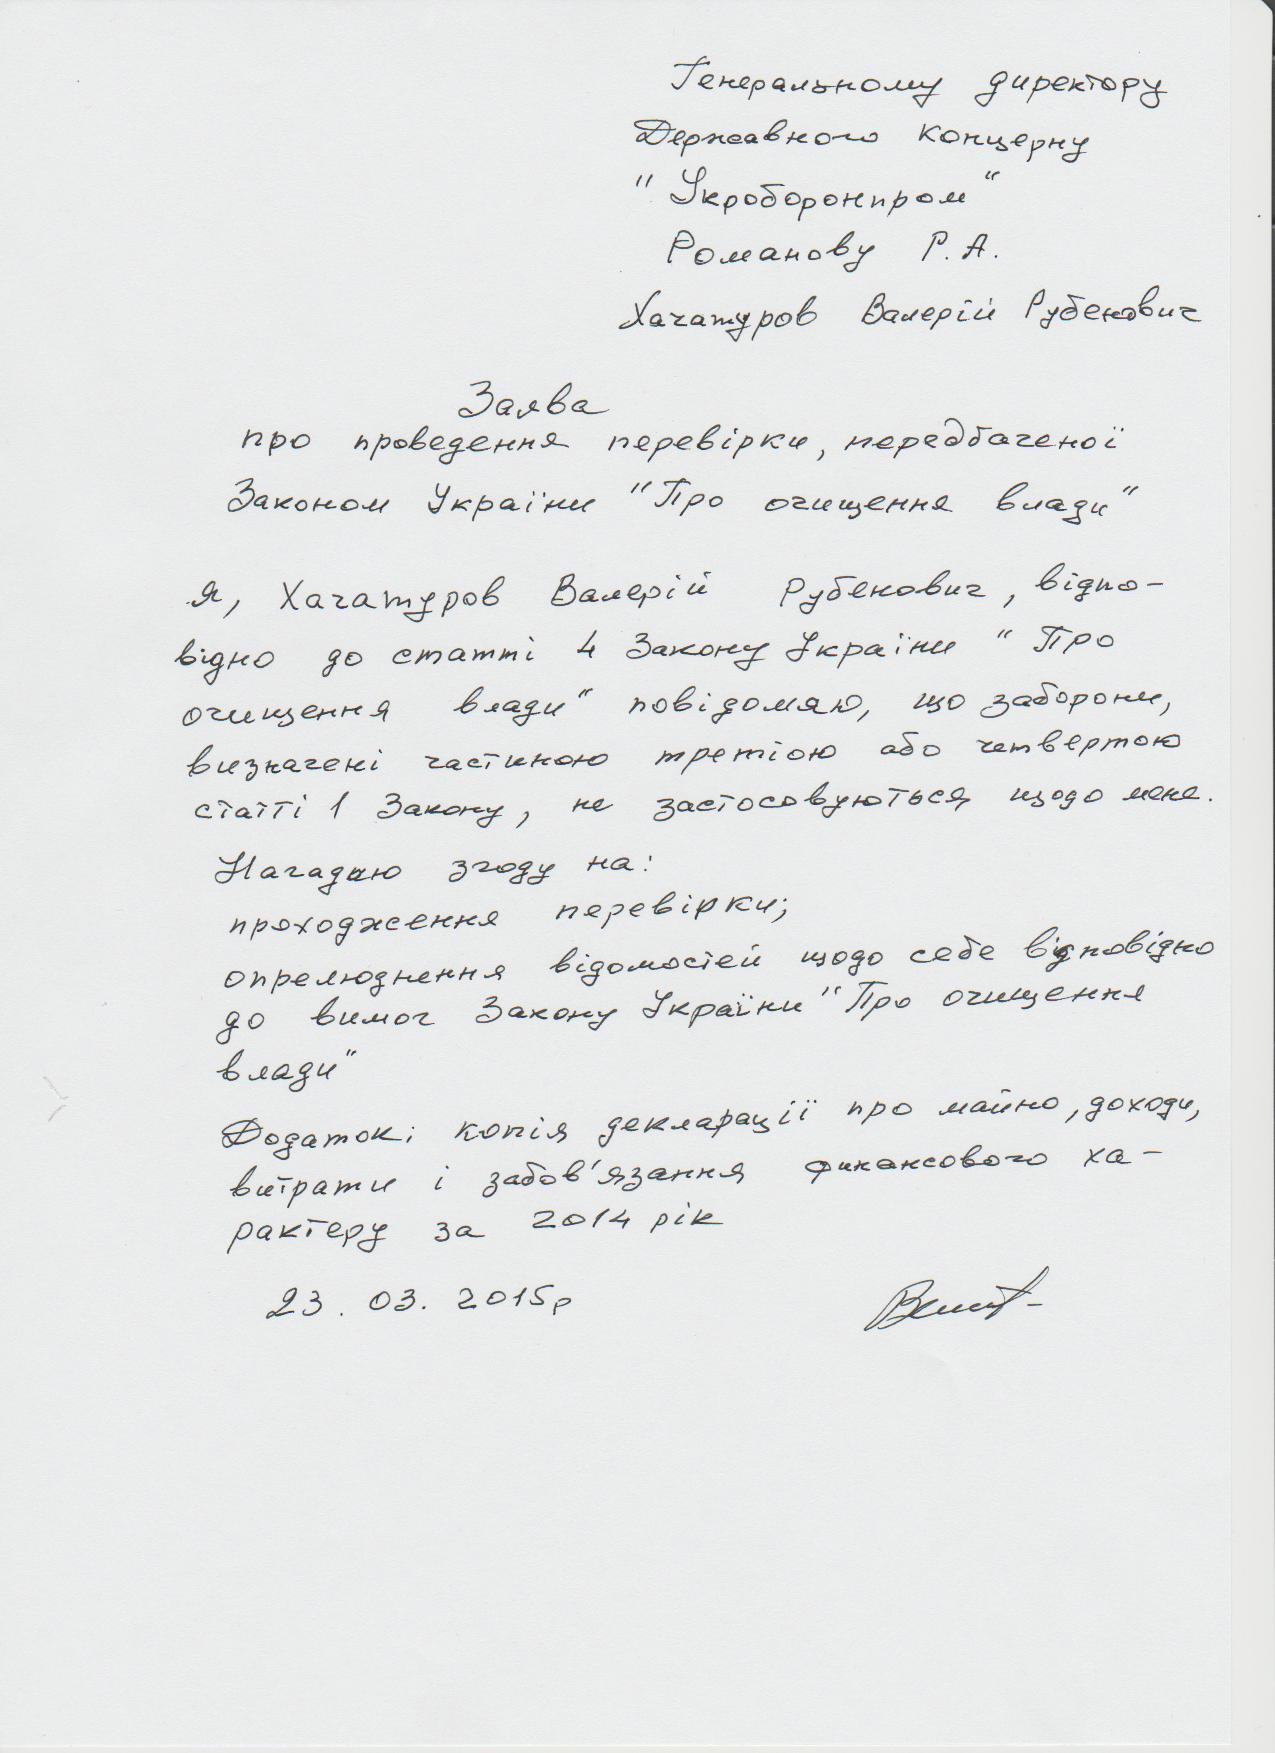 Генеральному директору
Державного концерну
"Укроборонпром"
Романову Р.А.
Хачатуров Валерій Рубенович
Заява
про проведення перевірки, передбаченої
Законом України "Про очищення влади"
Я, Хачатуров Валерій Рубенович, відпо-
відно до статті 4 Закону України "Про
очищення влади" повідомяю, що заборони,
визначені частиною третіою або четвертою
статті 1 Закону, не застосовуються щодо мене.
Нагадаю згоду на:
проходження перевірки;
опрелюднення відомостей щодо себе відповідно
до вимог Закону України "Про очищення
влади"
Додаток: копія декларації про майно, доходи,
витрати і забов'язання фінансового ха-
рактеру за 2014 рік
23.03.2015р